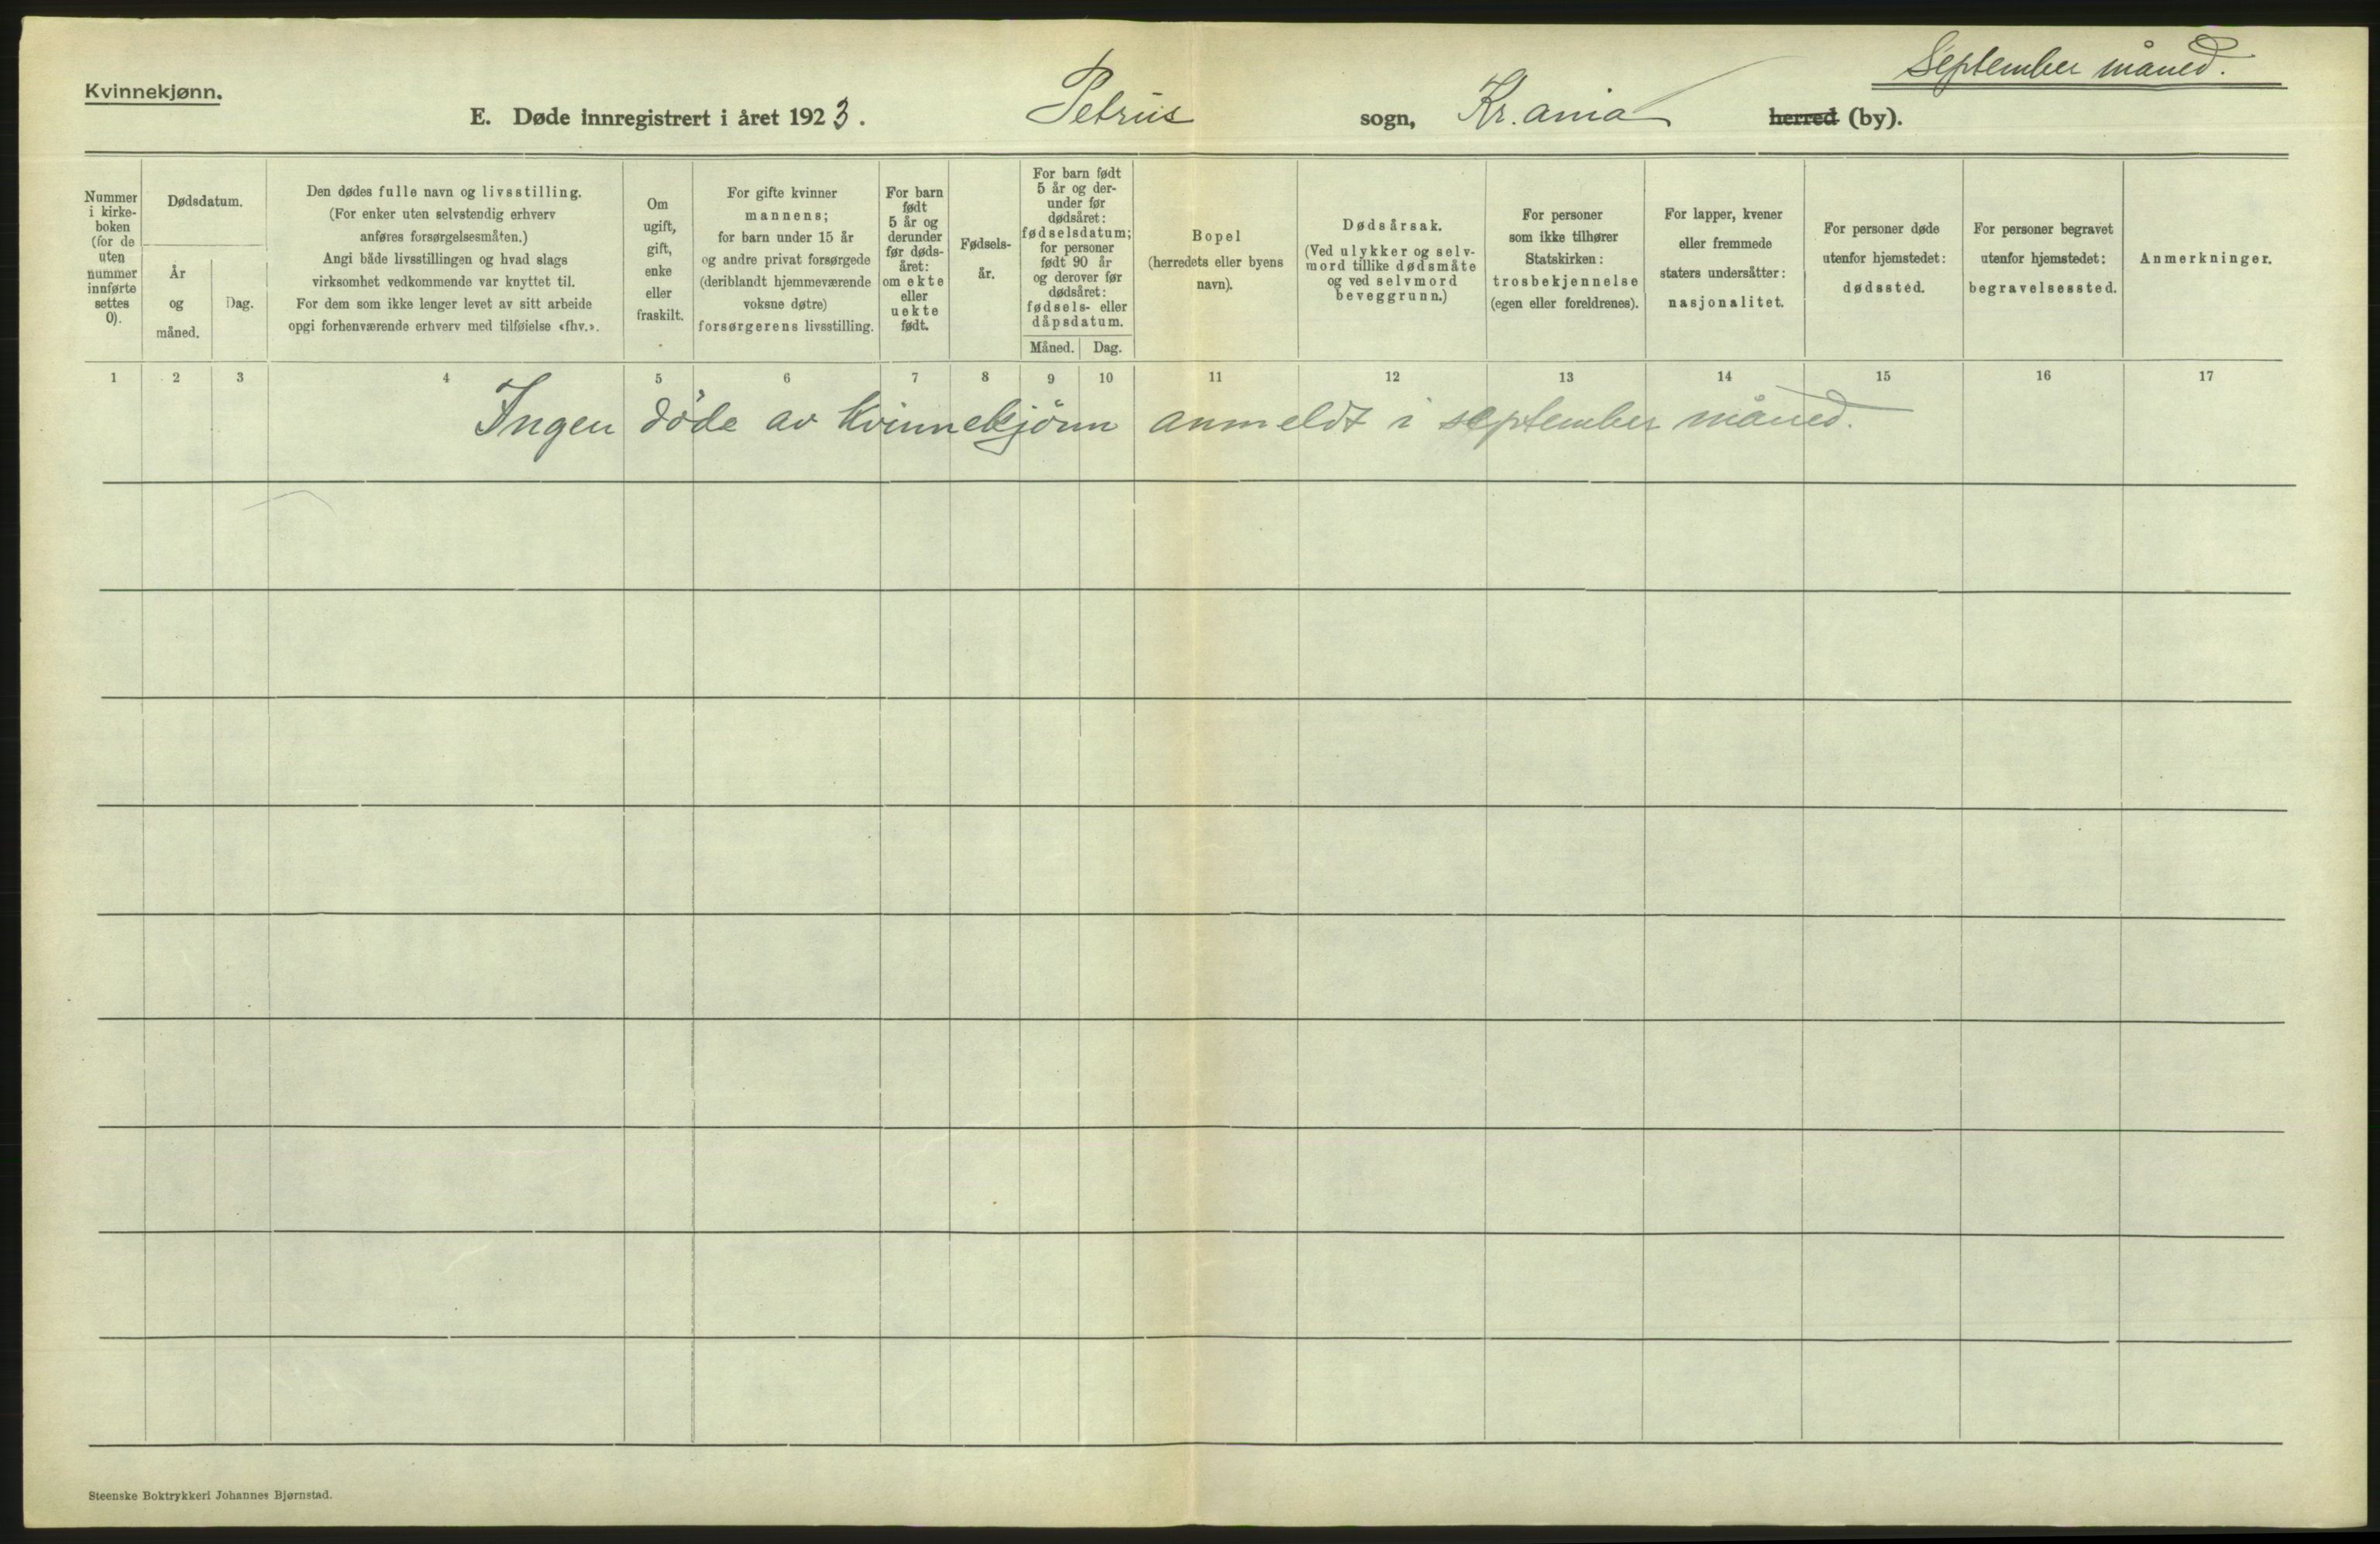 September måned.
Kvinnekjønn.
E. Døde innregistrert i året 1923. Petrus sogn, Kr.ania herred (by).
Nummer
i kirke-
boken
(for de
uten
nummer
innførte
settes
0).
Dødsdatum.
År
og
måned.
Dag.
Den dødes fulle navn og livsstilling.
(For enker uten selvstendig erhverv
anføres forsørgelsesmåten.)
Angi både livsstillingen og hvad slags
virksomhet vedkommende var knyttet til.
For dem som ikke lenger levet av sitt arbeide
opgi forhenværende erhverv med tilføielse «fhv.».
Om
ugift,
gift,
enke
eller
fraskilt.
For gifte kvinner
mannens;
for barn under 15 år
og andre privat forsørgede
(deriblandt hjemmeværende
voksne døtre)
forsørgerens livsstilling.
For barn
født
5 år og
derunder
før døds-
året:
om ekte
eller
uekte
født.
Fødsels-
år.
For barn født
5 år og der-
under før
dødsåret:
fødselsdatum;
for personer
født 90 år
og derover før
dødsåret:
fødsels- eller
dåpsdatum.
Måned. Dag.
Bopel
(herredets eller byens
navn).
Dødsårsak.
(Ved ulykker og selv-
mord tillike dødsmåte
og ved selvmord
beveggrunn.)
For personer
som ikke tilhører
Statskirken:
trosbekjennelse
(egen eller foreldrenes).
For lapper, kvener
eller fremmede
staters undersåtter:
nasjonalitet.
For personer døde
utenfor hjemstedet:
dødssted.
For personer begravet
utenfor hjemstedet:
begravelsessted.
Anmerkninger.
1 2 3 4 5 6 7 8 9 10 11 12 13 14 15 16 17
Ingen døde av kvinnekjønn anmeldt i september måned.
Steenske Boktrykkeri Johannes Bjørnstad.